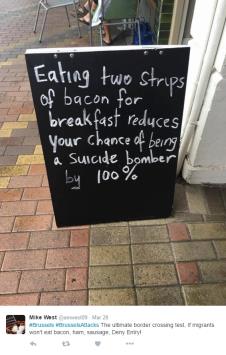 Eating two strips
of bacon for
breakfast reduces
your chance of being
a suicide bomber
by 100%
Mike West @aewest09 · Mar 26
#Brussels #BrusselsAttacks The ultimate border crossing test, if migrants
won't eat bacon, ham, sausage, Deny Entry!